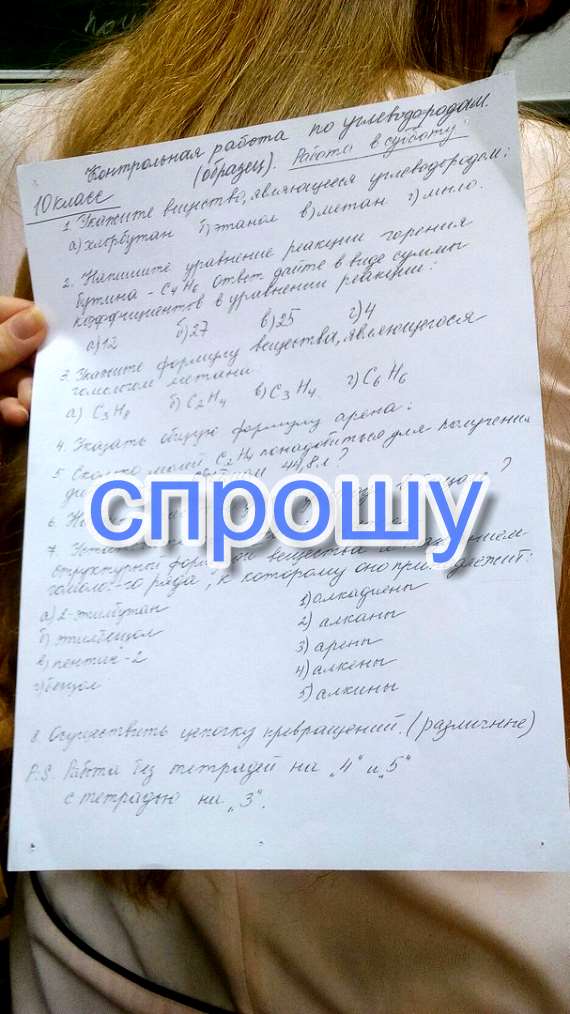 Контрольная работа по углеводородам.
(образец). Работа в субботу.
10 класс
1. Укажите вещество, являющееся углеводородом:
а) хлорбутан б) этанол в) метан г) мыло.
2. Напишите уравнение реакции горения
бутина - C4H6 ответ дайте в виде суммы
коэффициентов в уравнении реакции:
а) 12 б) 27 в) 25 г) 4
3. Укажите формулу вещества, являющегося
гомологом метана:
а) C3H8 б) C2H4 в) C3H4 г) C6H6
4. Указать общую формулу арена:
5. Сколько молей C2H4 понадобиться для получения
44,8 л?
6.
спрошу
7.
структурной формулой вещества и названием
гомолог-го ряда, к которому оно принадлежит:
а) 2-этилбутан 1) алкадиены
б) этилбензол 2) алканы
в) пентин-2 3) арены
г) бензол 4) алкены
5) алкины
8. Осуществить цепочку превращений. (различные)
P.S. Работа без тетрадей на „4" и „5"
с тетрадью на „3".